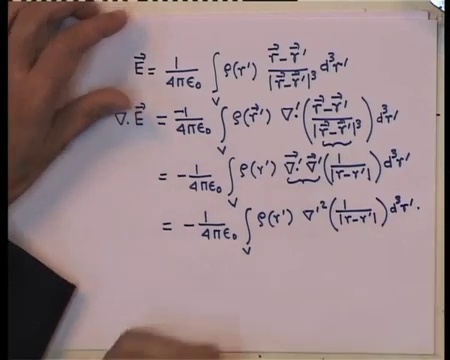 E⃗ = 1/4πε₀ ∫_V ρ(r') (r⃗ − r⃗')/|r⃗ − r⃗'|³ d³r'
∇. E⃗ = −1/4πε₀ ∫_V ρ(r⃗') ∇'.( (r⃗ − r⃗')/|r⃗ − r⃗'|³ ) d³r'
= − 1/4πε₀ ∫_V ρ(r') ∇⃗'. ∇⃗' ( 1/|r − r'| ) d³r'
= − 1/4πε₀ ∫_V ρ(r') ∇'² ( 1/|r − r'| ) d³r'.